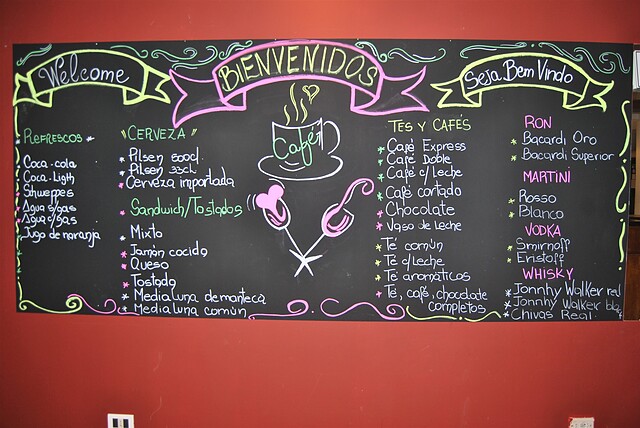 Welcome
BIENVENIDOS
Seja Bem Vindo
REFRESCOS
Coca-cola
Coca-Ligth
Schweppes
Agua s/gas
Agua c/gas
Jugo de naranja
"CERVEZA"
Pilsen 500cl
Pilsen 33cl
Cerveza importada
Sandwich/Tostados
Mixto
Jamón cocido
Queso
Tostado
Medialuna de manteca
Medialuna común
Café
TES Y CAFÉS
Café Express
Café Doble
Café c/Leche
Café cortado
Chocolate
Vaso de Leche
Té común
Té c/Leche
Té aromáticos
Té, café, chocolate
completos
RON
Bacardi Oro
Bacardi Superior
MARTINI
Rosso
Blanco
VODKA
Smirnoff
Eristoff
WHISKY
Jonnhy Walker
Jonnhy Walker
Chivas Real